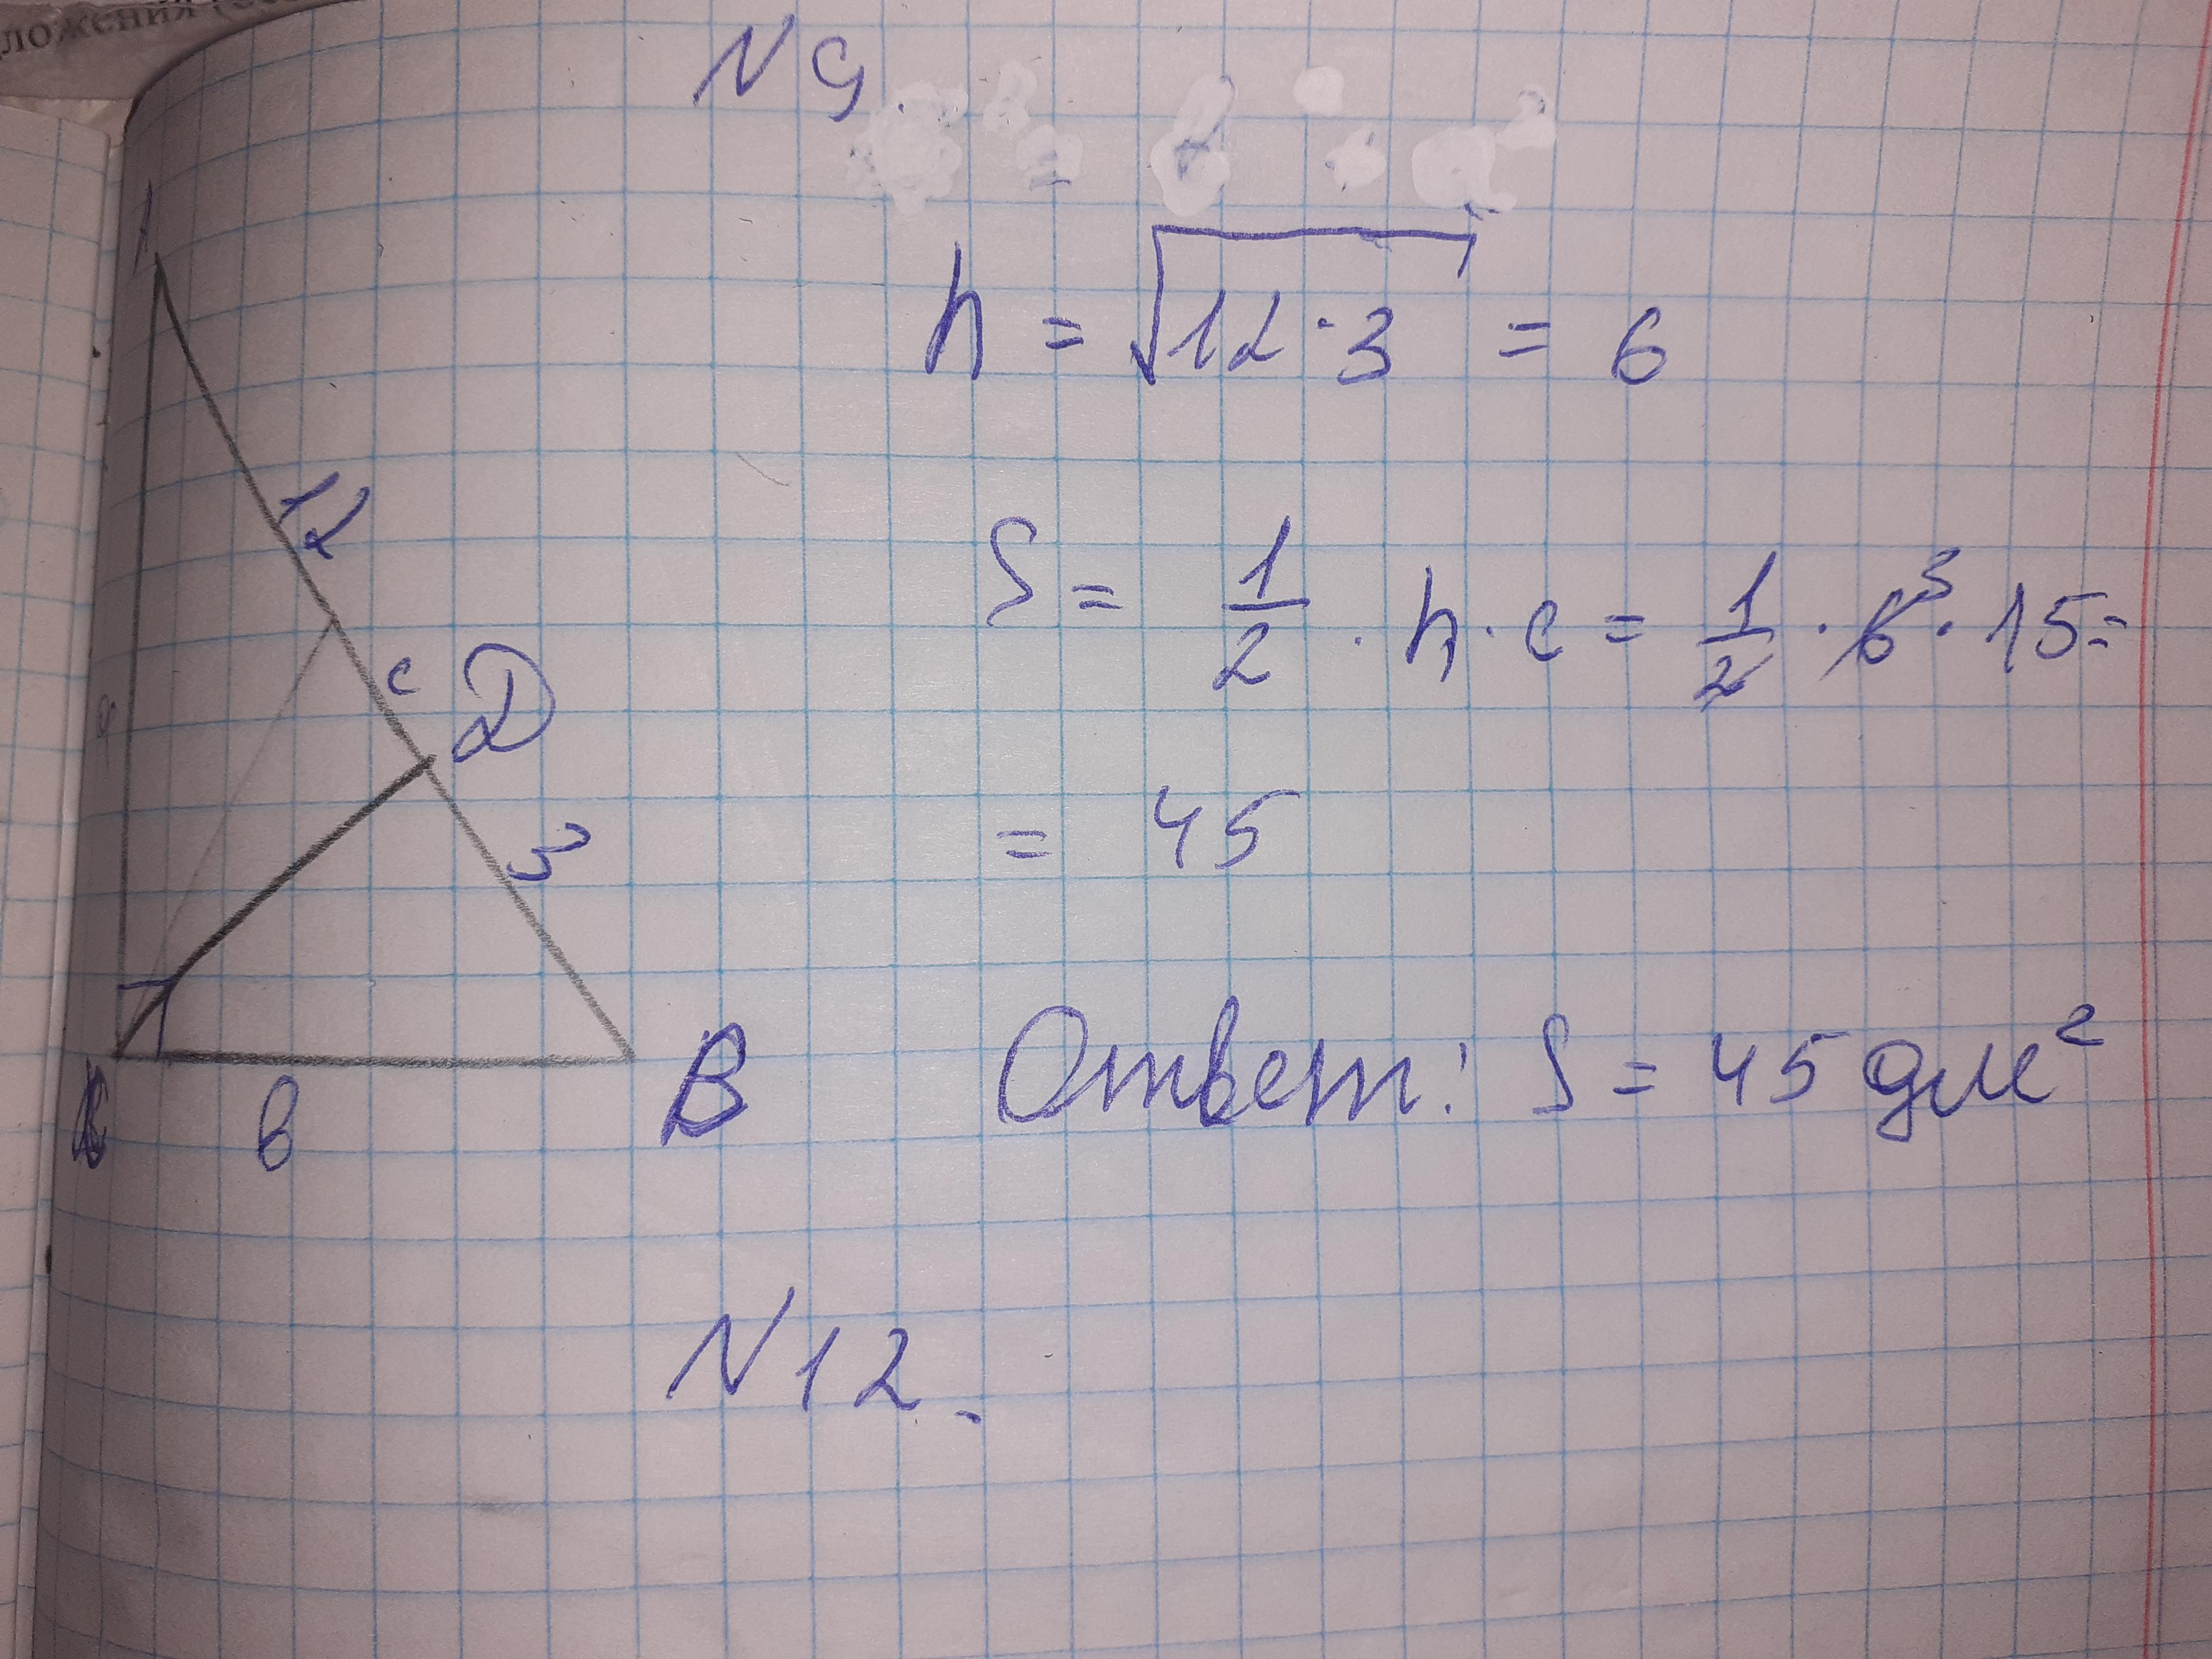 ложения
N 9.
h = √12·3 = 6
S = 1/2 · h · c = 1/2 · 6³ · 15 =
= 45
Ответ: S = 45 дм²
A
12
c
D
3
C
в
B
N12.